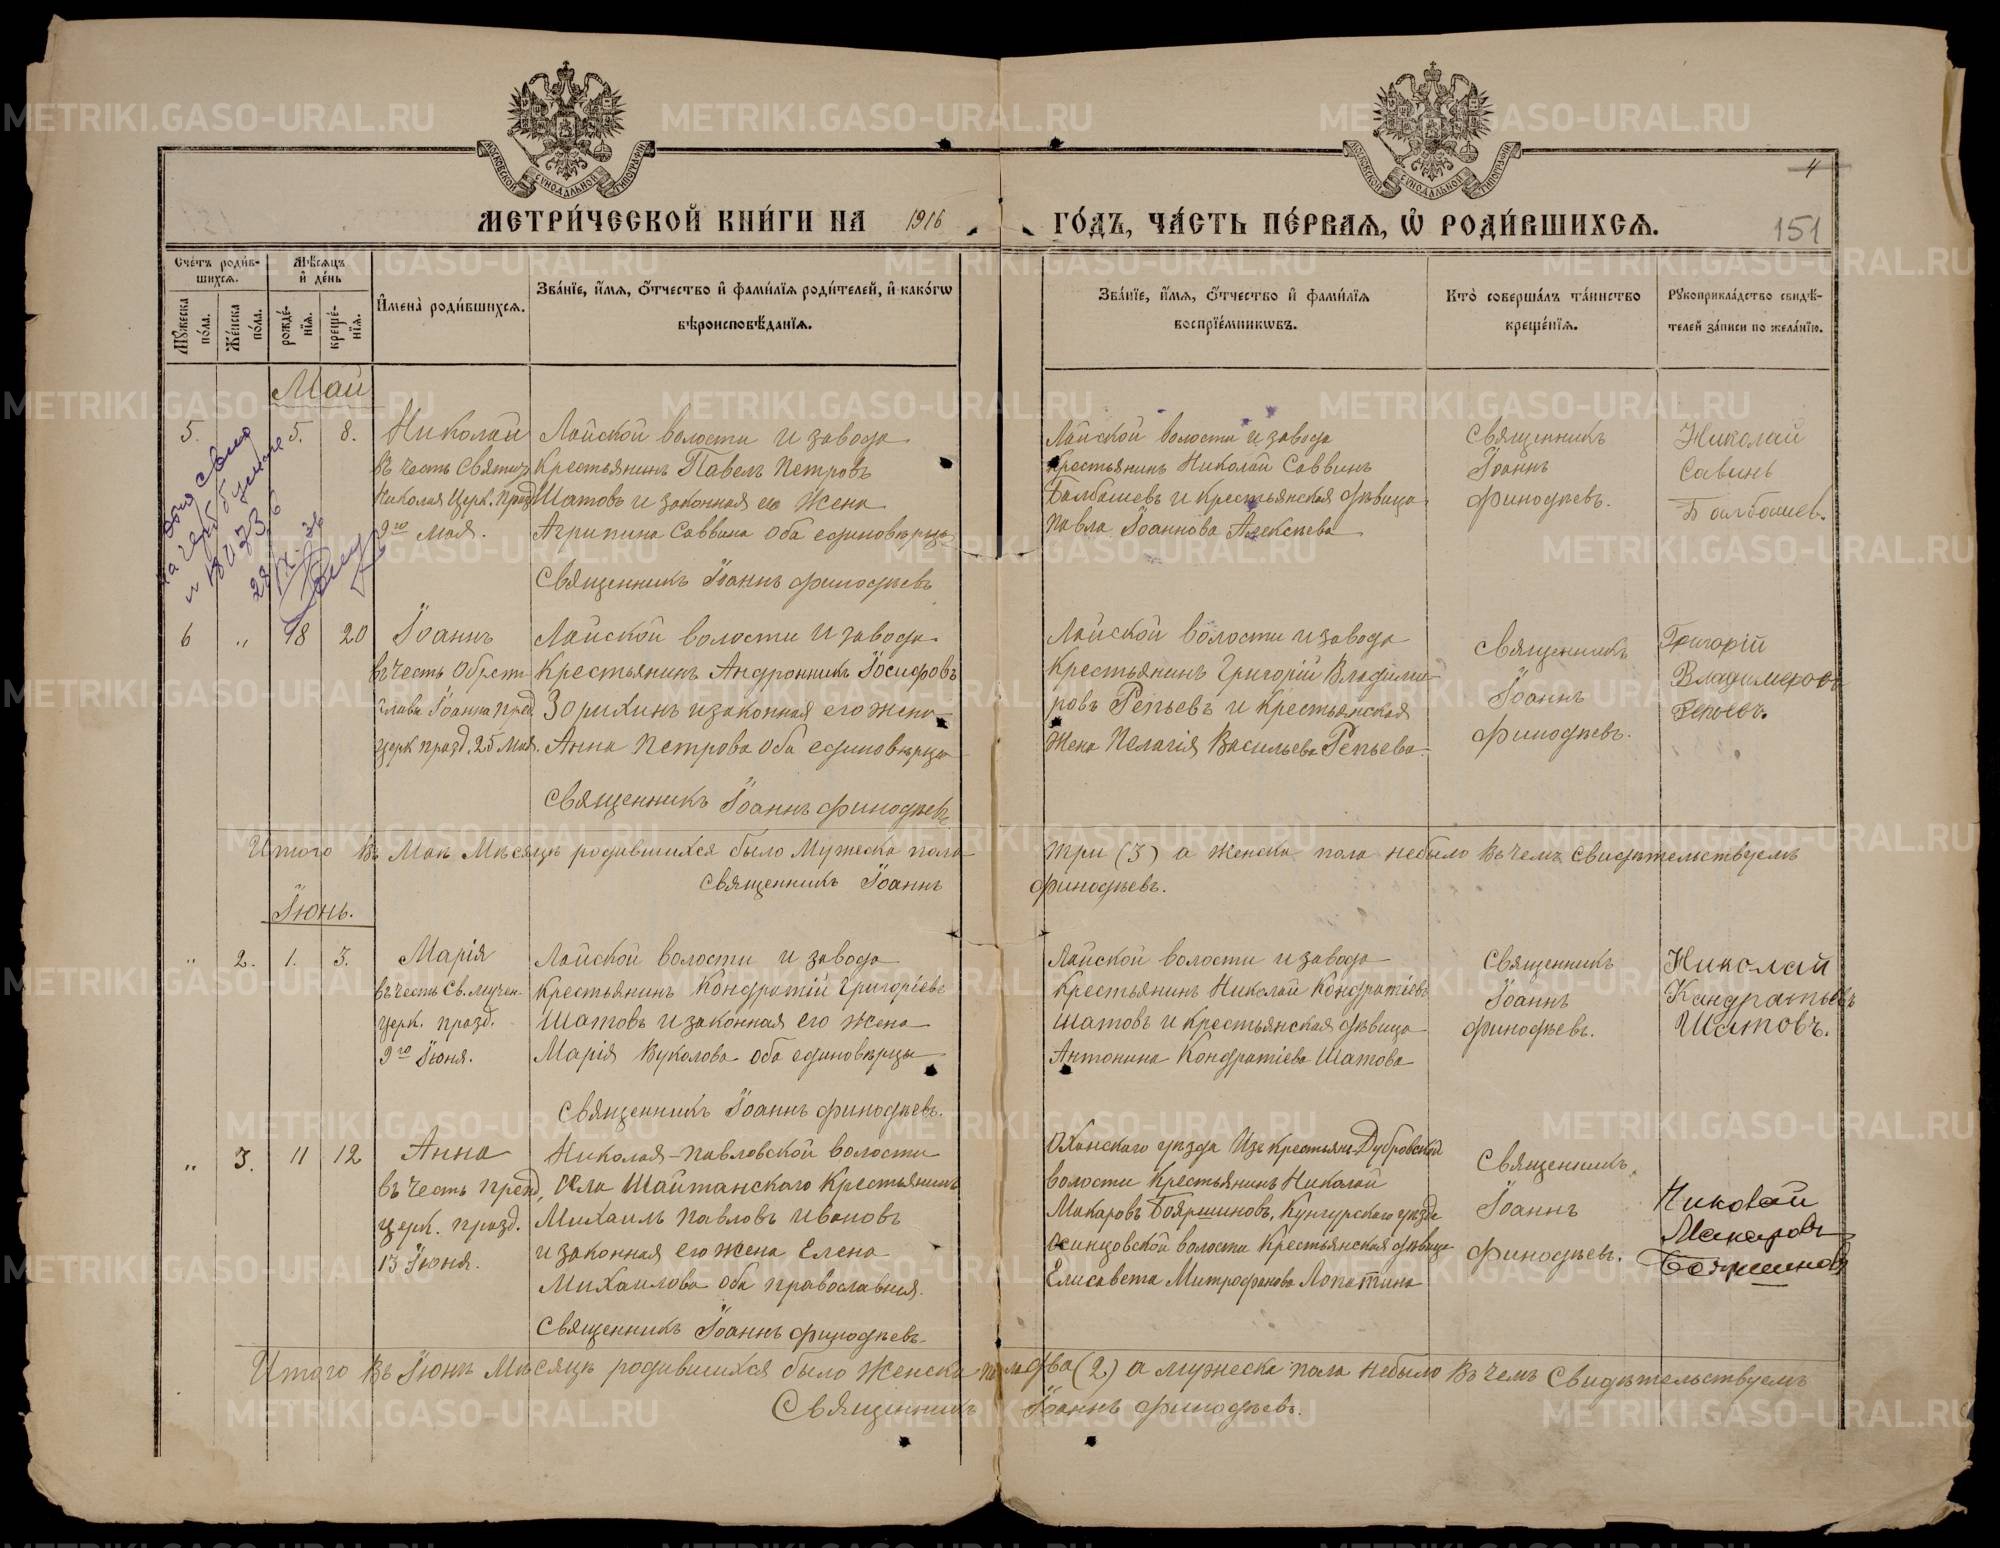 МЕТРИ́ЧЕСКОЙ КНИ́ГИ НА 1916
ГО́ДЪ, ЧА́СТЬ ПЕ́РВАЯ, Ѡ҆ РОДИ́ВШИХСЯ.
4
151
Сче́тъ роди́в-
шихся.
Мѣ́сяцъ
и҆ де́нь
Мꙋ́жеска
по́ла.
Же́нска
по́ла.
рожде́-
нїя.
креще́-
нїя.
И҆мена̀ роди́вшихся.
Зва́нїе, и҆́мя, ѻ҆́тчество и҆ фами́лїя роди́телей, и҆ како́гѡ
вѣроисповѣ́данїя.
Зва́нїе, и҆́мя, ѻ҆́тчество и҆ фами́лїя
воспрїе́мникѡвъ.
Кто̀ соверша́лъ та́инство
креще́нїя.
Рꙋкоприкла́дство свидѣ́-
телей за́писи по жела́нїю.
Май
5. 5. 8.
Николай
въ честь Святит.
Николая Церк. Празд.
9го мая.
Лайской волости и завода
Крестьянинъ Павелъ Петровъ
Шатовъ и законная его жена
Агрипина Саввина оба единовѣрцы
Священникъ Іоаннъ Финодѣевъ
Лайской волости и завода
Крестьянинъ Николай Саввинъ
Балбашевъ и Крестьянская дѣвица
Павла Іоаннова Алексѣева
Священникъ
Іоаннъ
Финодѣевъ.
Николай
Савинъ
Балбашев.
6 „ 18 20
Іоаннъ
въ честь Обрѣт.
главы Іоанна Пред.
церк. празд. 25 Мая.
Лайской волости и завода
Крестьянинъ Андронникъ Іосифовъ
Зорихинъ и законная его жена
Анна Петрова оба единовѣрцы
Священникъ Іоаннъ Финодѣевъ
Лайской волости и завода
Крестьянинъ Григорій Владими-
ровъ Репьевъ и Крестьянская
жена Пелагія Васильева Репьева
Священникъ
Іоаннъ
Финодѣевъ.
Григорій
Владимеровъ
Репьевъ.
Итого въ Маѣ Мѣсяцѣ родившихся было Мужеска пола три (3) а женска пола небыло въ чемъ свидѣтельствуемъ
Священникъ Іоаннъ Финодѣевъ.
Іюнь.
„ 2. 1. 3.
Марія
въ честь Св. мучен.
церк. празд.
9го Іюня.
Лайской волости и завода
Крестьянинъ Кондратій Григоріевъ
Шатовъ и законная его жена
Марія Вуколова оба единовѣрцы
Священникъ Іоаннъ Финодѣевъ.
Лайской волости и завода
Крестьянинъ Николай Кондратіевъ
Шатовъ и Крестьянская дѣвица
Антонина Кондратіева Шатова
Священникъ
Іоаннъ
Финодѣевъ.
Николай
Кандратьевъ
Шатовъ.
„ 3. 11 12
Анна
въ честь препд.
церк. празд.
13 Іюня.
Николае-Павловской волости
села Шайтанскаго Крестьянинъ
Михаилъ Павловъ Ивановъ
и законная его жена Елена
Михаилова оба православныя.
Священникъ Іоаннъ Финодѣевъ
Оханскаго уѣзда Изъ Крестьянъ Дубровской
волости Крестьянинъ Николай
Макаровъ Бояршиновъ, Кунгурскаго уѣзда
Осинцовской волости Крестьянская дѣвица
Елисавета Митрофанова Лопатина
Священникъ
Іоаннъ
Финодѣевъ.
Николай
Макаровъ
Бояршиновъ
Итого въ Іюнѣ Мѣсяцѣ родившихся было женска пола два (2) а мужеска пола небыло въ чемъ Свидѣтельствуемъ
Священникъ Іоаннъ Финодѣевъ.
METRIKI.GASO-URAL.RU